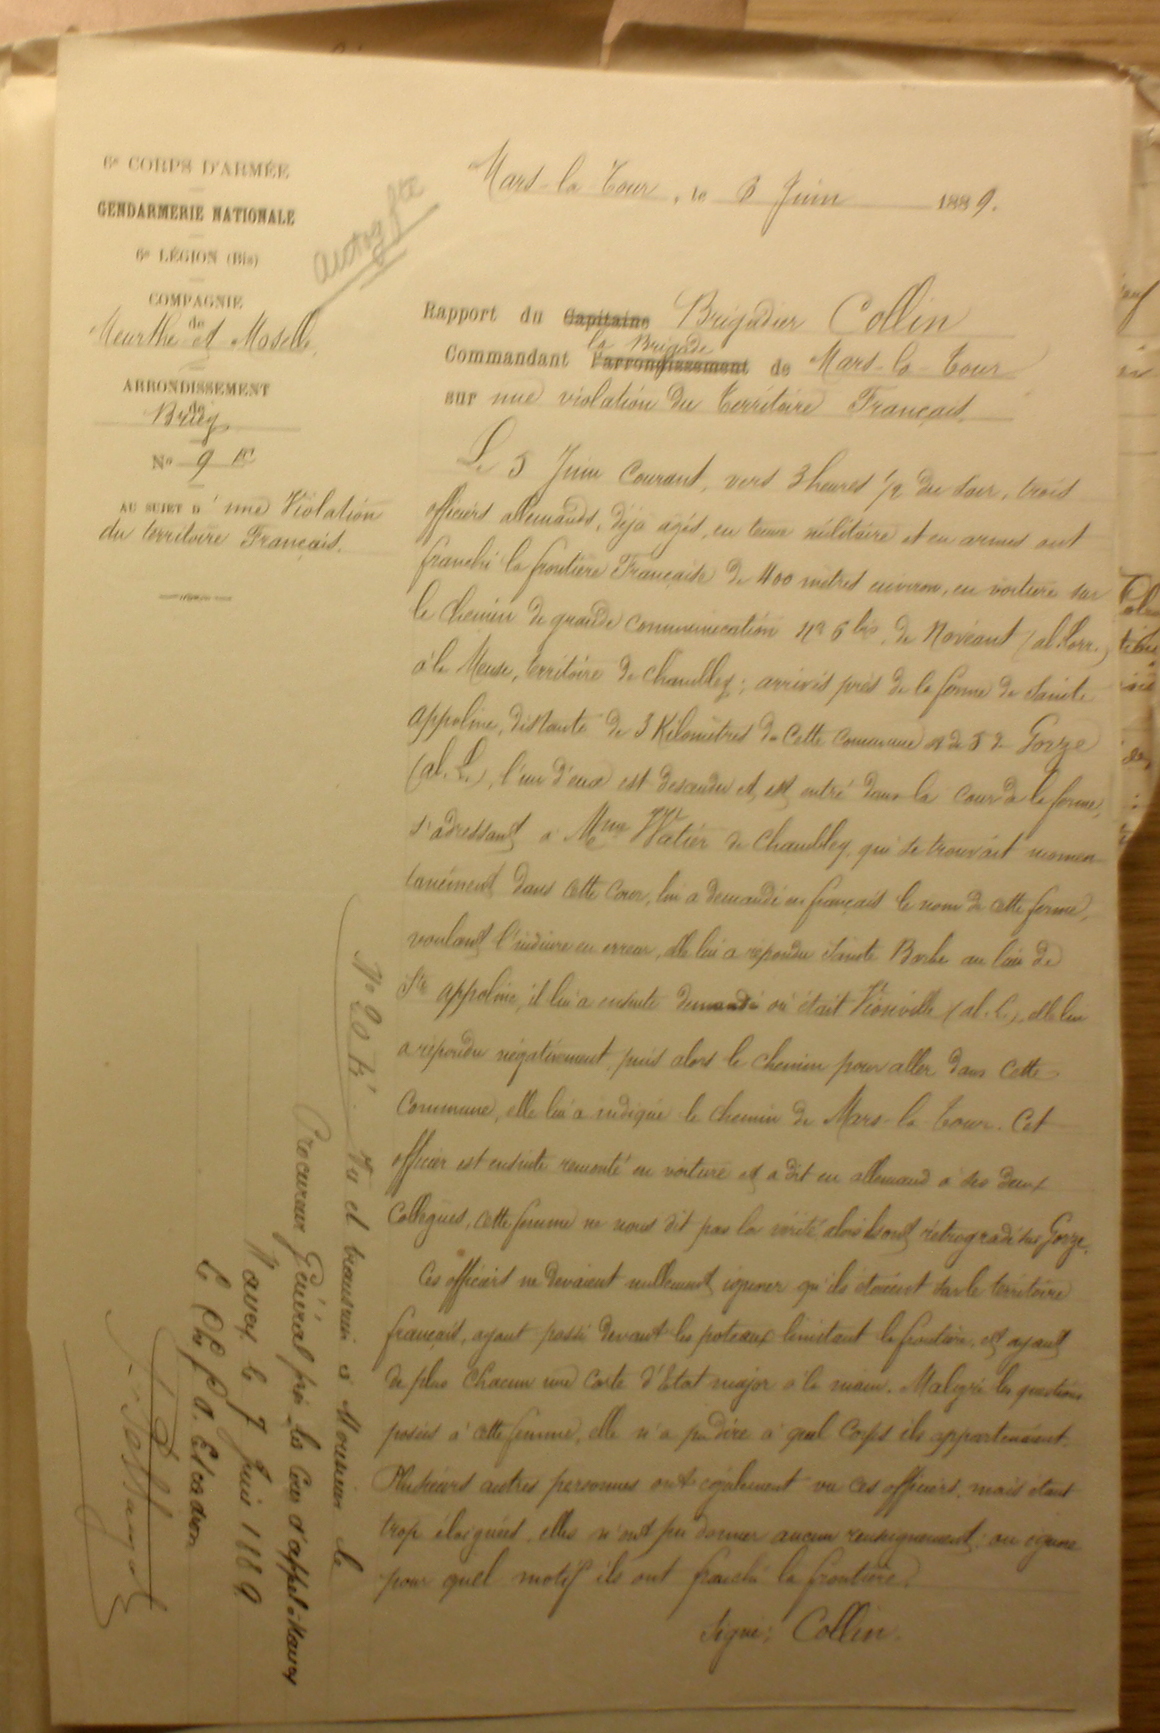 6e CORPS D'ARMÉE
GENDARMERIE NATIONALE
6e LÉGION (Bis)
COMPAGNIE
de
Meurthe et Moselle
ARRONDISSEMENT
de
Briey
No 9
AU SUJET D'une Violation
du territoire Français.
Mars-la-Tour, le 6 Juin 1889.
Rapport du Capitaine Brigadier Collin
la Brigade
Commandant l'arrondissement de Mars-la-Tour
sur une violation du Territoire Français.
Le 5 Juin courant, vers 3 heures 1/2 du soir, trois
officiers allemands, déjà agés, en tenue militaire et en armes ont
franchi la frontière Française de 400 mètres environ, en voiture sur
le chemin de grande communication No 6 bis, de Novéant (al. Lorr.)
à la Meuse, territoire de Chambley; arrivés près de la ferme de Sainte
Appoline, distante de 3 Kilomètres de cette commune et de 5 de Gorze
(al. L.), l'un d'eux est descendu et est entré dans la cour de la ferme,
s'adressant à Mme Watier de Chambley, qui se trouvait momen-
tanément dans cette cour, lui a demandé en français le nom de cette ferme,
voulant l'induire en erreur, elle lui a répondu Sainte Barbe au lieu de
Ste Appoline, il lui a ensuite demandé où était Vionville (al. L.), elle lui
a répondu négativement, puis alors le chemin pour aller dans cette
Commune, elle lui a indiqué le chemin de Mars-la-Tour. Cet
officier est ensuite remonté en voiture et a dit en allemand à ses deux
Collègues, cette femme ne nous dit pas la vérité, alors ils ont rétrogradé sur Gorze.
Ces officiers ne devaient nullement ignorer qu'ils étaient sur le territoire
français, ayant passé devant les poteaux limitant la frontière, et ayant
de plus chacun une carte d'Etat major à la main. Malgré les questions
posées à cette femme, elle n'a pu dire à quel Corps ils appartenaient.
Plusieurs autres personnes ont également vu ces officiers, mais étant
trop éloignées, elles n'ont pu donner aucun renseignement; on ignore
pour quel motif ils ont franchi la frontière.
Signé: Collin.
Vu et transmis à Monsieur le
Procureur Général près la Cour d'appel à Nancy
Nancy le 7 Juin 1889
Le Chef d'Escadron